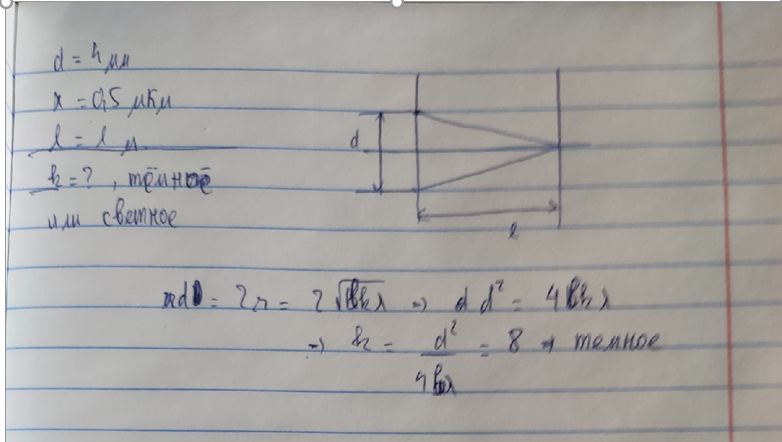 d = 4 мм
λ = 0,5 мкм
l = 1 м
k = ? , тёмное
или светное
d
l
d = 2r = 2√(lkλ) ⇒ d² = 4lkλ
⇒ k = d²/4lλ = 8 ⇒ темное